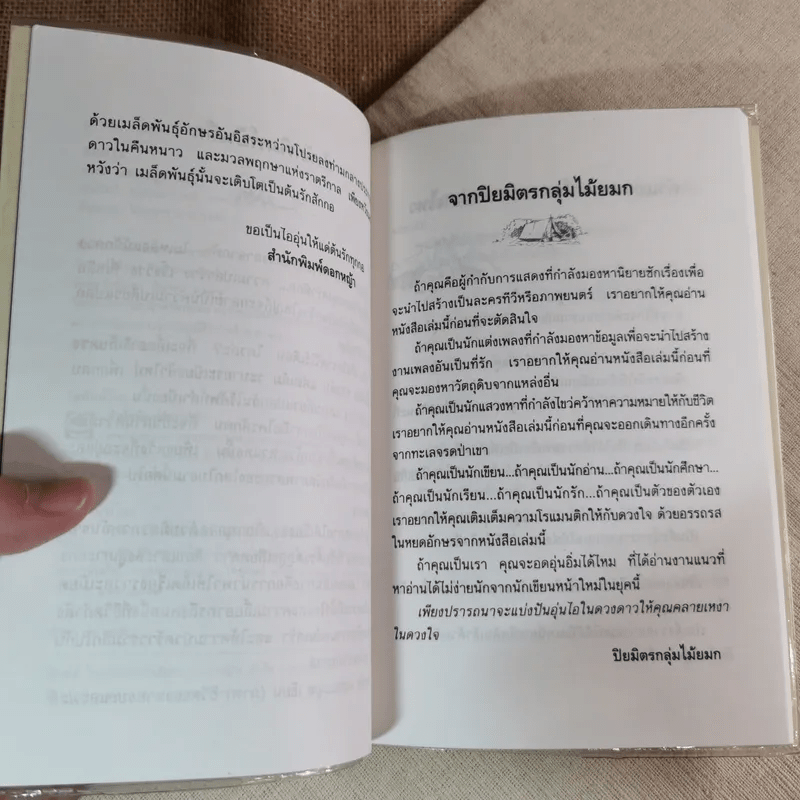 ด้วยเมล็ดพันธุ์อักษรอันอิสระหว่านโปรยลงท่ามกลาง
ดาวในคืนหนาว และมวลพฤกษาแห่งราตรีกาล เพียงหวัง
หวังว่า เมล็ดพันธุ์นั้นจะเติบโตเป็นต้นรักสักกอ
ขอเป็นไออุ่นให้แด่ต้นรักทุกกอ
สำนักพิมพ์ดอกหญ้า
จากปิยมิตรกลุ่มไม้ยมก
ถ้าคุณคือผู้กำกับการแสดงที่กำลังมองหานิยายซักเรื่องเพื่อ
จะนำไปสร้างเป็นละครทีวีหรือภาพยนตร์ เราอยากให้คุณอ่าน
หนังสือเล่มนี้ก่อนที่จะตัดสินใจ
ถ้าคุณเป็นนักแต่งเพลงที่กำลังมองหาข้อมูลเพื่อจะนำไปสร้าง
งานเพลงอันเป็นที่รัก เราอยากให้คุณอ่านหนังสือเล่มนี้ก่อนที่
คุณจะมองหาวัตถุดิบจากแหล่งอื่น
ถ้าคุณเป็นนักแสวงหาที่กำลังไขว่คว้าหาความหมายให้กับชีวิต
เราอยากให้คุณอ่านหนังสือเล่มนี้ก่อนที่คุณจะออกเดินทางอีกครั้ง
จากทะเลจรดป่าเขา
ถ้าคุณเป็นนักเขียน...ถ้าคุณเป็นนักอ่าน...ถ้าคุณเป็นนักศึกษา...
ถ้าคุณเป็นนักเรียน...ถ้าคุณเป็นนักรัก...ถ้าคุณเป็นตัวของตัวเอง
เราอยากให้คุณเติมเต็มความโรแมนติกให้กับดวงใจ ด้วยอรรถรส
ในหยดอักษรจากหนังสือเล่มนี้
ถ้าคุณเป็นเรา คุณจะอดอุ่นอิ่มได้ไหม ที่ได้อ่านงานแนวที่
หาอ่านได้ไม่ง่ายนักจากนักเขียนหน้าใหม่ในยุคนี้
เพียงปรารถนาจะแบ่งปันอุ่นไอในดวงดาวให้คุณคลายเหงา
ในดวงใจ
ปิยมิตรกลุ่มไม้ยมก